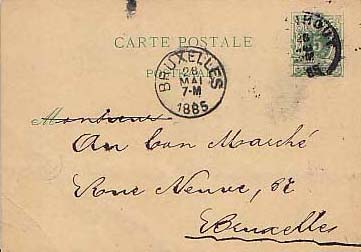 CARTE POSTALE
BRUXELLES
26
MAI
7-M
1885
Monsieur
Au bon Marché
Rue Neuve,
Bruxelles